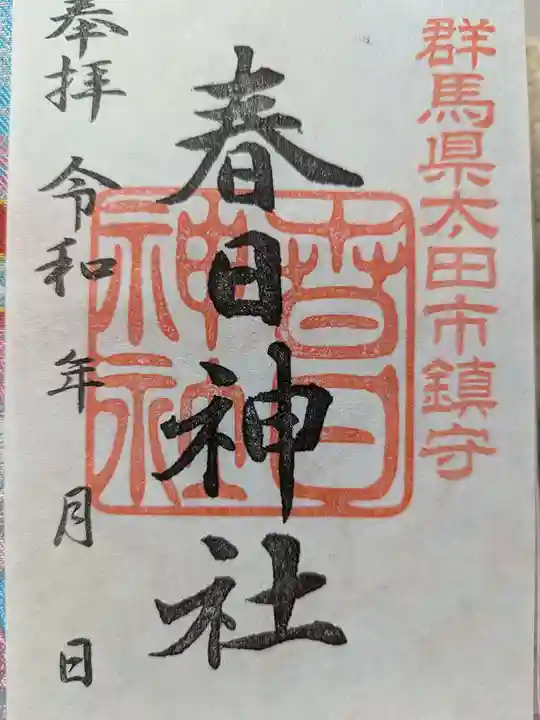 群馬県太田市鎮守
春日神社
春日神社
奉拝 令和 年 月 日